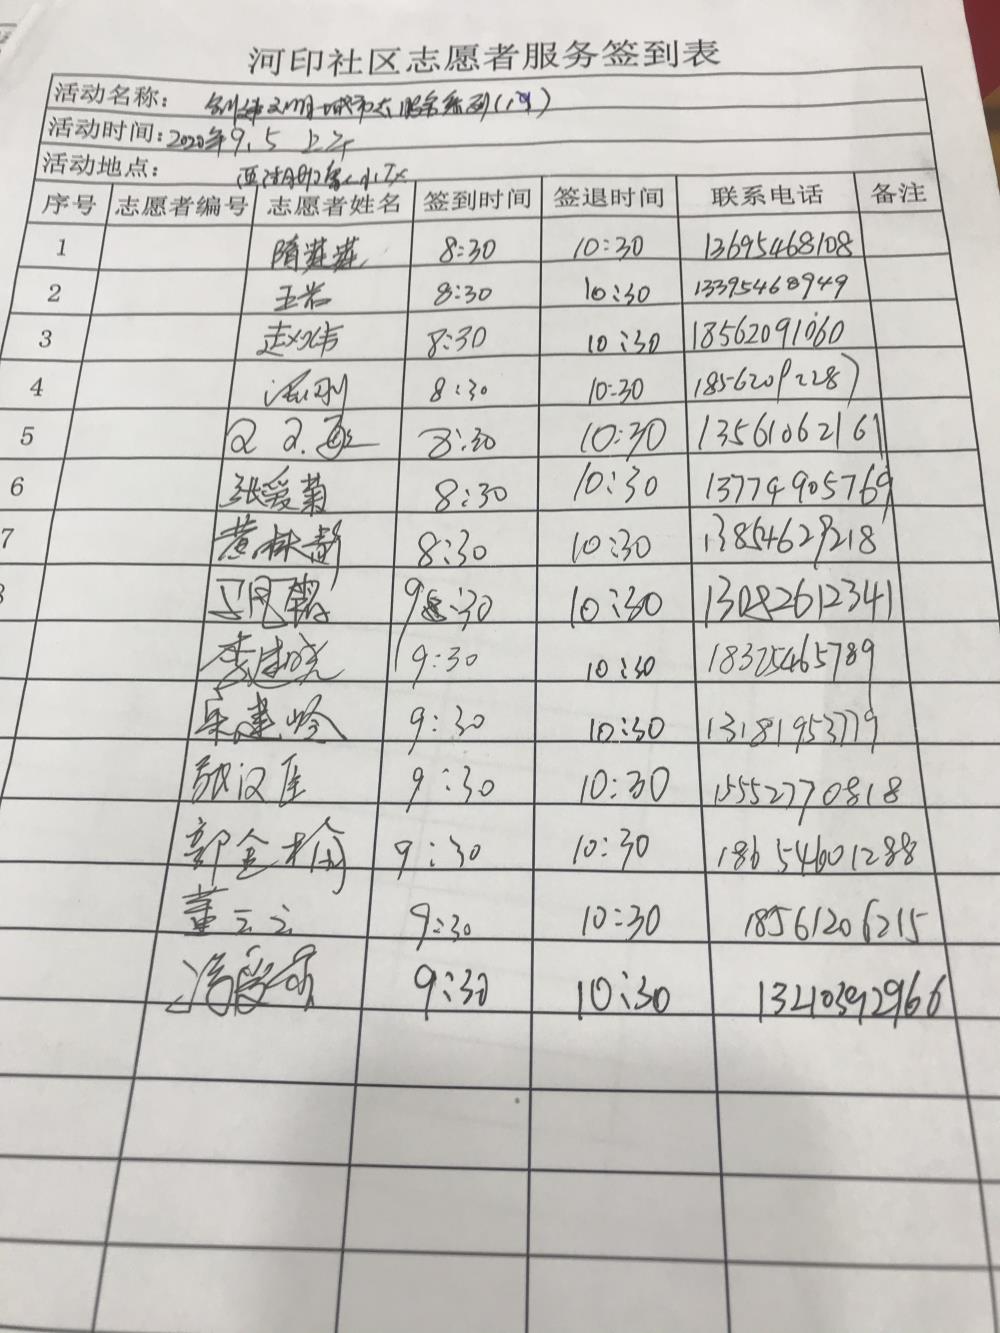 河印社区志愿者服务签到表
活动名称：创建文明城市志愿服务系列
活动时间：2020年9.5 上午
活动地点：
序号 志愿者编号 志愿者姓名 签到时间 签退时间 联系电话 备注
1 隋莲莲 8:30 10:30 13695468108
2 王岩 8:30 10:30 13395468949
3 8:30 10:30 18562091060
4 8:30 10:30
5 8:30 10:30 13561062161
6 张爱菊 8:30 10:30 13774905769
7 黄林静 8:30 10:30 13854629218
9:30 10:30 13082612341
李建晓 9:30 10:30 18325465789
9:30 10:30 13181953779
张汉臣 9:30 10:30 15552770818
郭金梅 9:30 10:30 18654601288
董云云 9:30 10:30 18561206215
9:30 10:30 13210392966